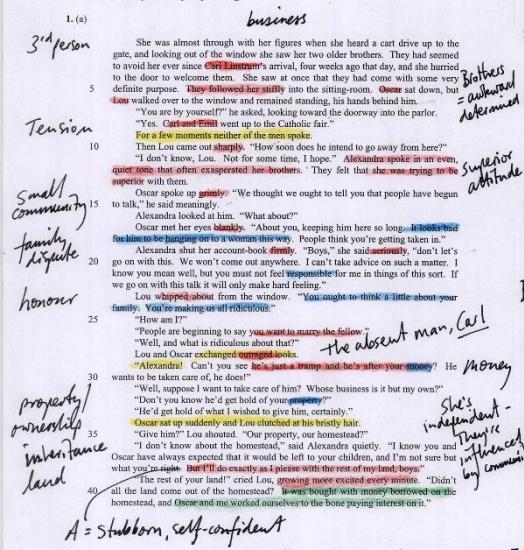 1. (a)
business
3rd person
She was almost through with her figures when she heard a cart drive up to the
gate, and looking out of the window she saw her two older brothers. They had seemed
to avoid her ever since Carl Linstrum's arrival, four weeks ago that day, and she hurried
to the door to welcome them. She saw at once that they had come with some very
5 definite purpose. They followed her stiffly into the sitting-room. Oscar sat down, but
Lou walked over to the window and remained standing, his hands behind him.
Brothers
= awkward
determined
"You are by yourself?" he asked, looking toward the doorway into the parlor.
"Yes. Carl and Emil went up to the Catholic fair."
For a few moments neither of the men spoke.
Tension
10 Then Lou came out sharply. "How soon does he intend to go away from here?"
"I don't know, Lou. Not for some time, I hope." Alexandra spoke in an even,
quiet tone that often exasperated her brothers. They felt that she was trying to be
superior with them.
superior
attitude
Oscar spoke up grimly. "We thought we ought to tell you that people have begun
15 to talk," he said meaningly.
small
community
Alexandra looked at him. "What about?"
Oscar met her eyes blankly. "About you, keeping him here so long. It looks bad
for him to be hanging on to a woman this way. People think you're getting taken in."
family
dispute
Alexandra shut her account-book firmly. "Boys," she said seriously, "don't let's
20 go on with this. We won't come out anywhere. I can't take advice on such a matter. I
know you mean well, but you must not feel responsible for me in things of this sort. If
we go on with this talk it will only make hard feeling."
honour
Lou whipped about from the window. "You ought to think a little about your
family. You're making us all ridiculous."
25 "How am I?"
"People are beginning to say you want to marry the fellow."
"Well, and what is ridiculous about that?"
the absent man, Carl
Lou and Oscar exchanged outraged looks.
"Alexandra! Can't you see he's just a tramp and he's after your money? He
30 wants to be taken care of, he does!"
money
"Well, suppose I want to take care of him? Whose business is it but my own?"
"Don't you know he'd get hold of your property?"
"He'd get hold of what I wished to give him, certainly."
Oscar sat up suddenly and Lou clutched at his bristly hair.
35 "Give him?" Lou shouted. "Our property, our homestead?"
"I don't know about the homestead," said Alexandra quietly. "I know you and
Oscar have always expected that it would be left to your children, and I'm not sure but
what you're right. But I'll do exactly as I please with the rest of my land, boys."
"The rest of your land!" cried Lou, growing more excited every minute. "Didn't
40 all the land come out of the homestead? It was bought with money borrowed on the
homestead, and Oscar and me worked ourselves to the bone paying interest on it."
property
ownership
inheritance
land
She's
independent -
They're
influenced
by
A = stubborn, self-confident